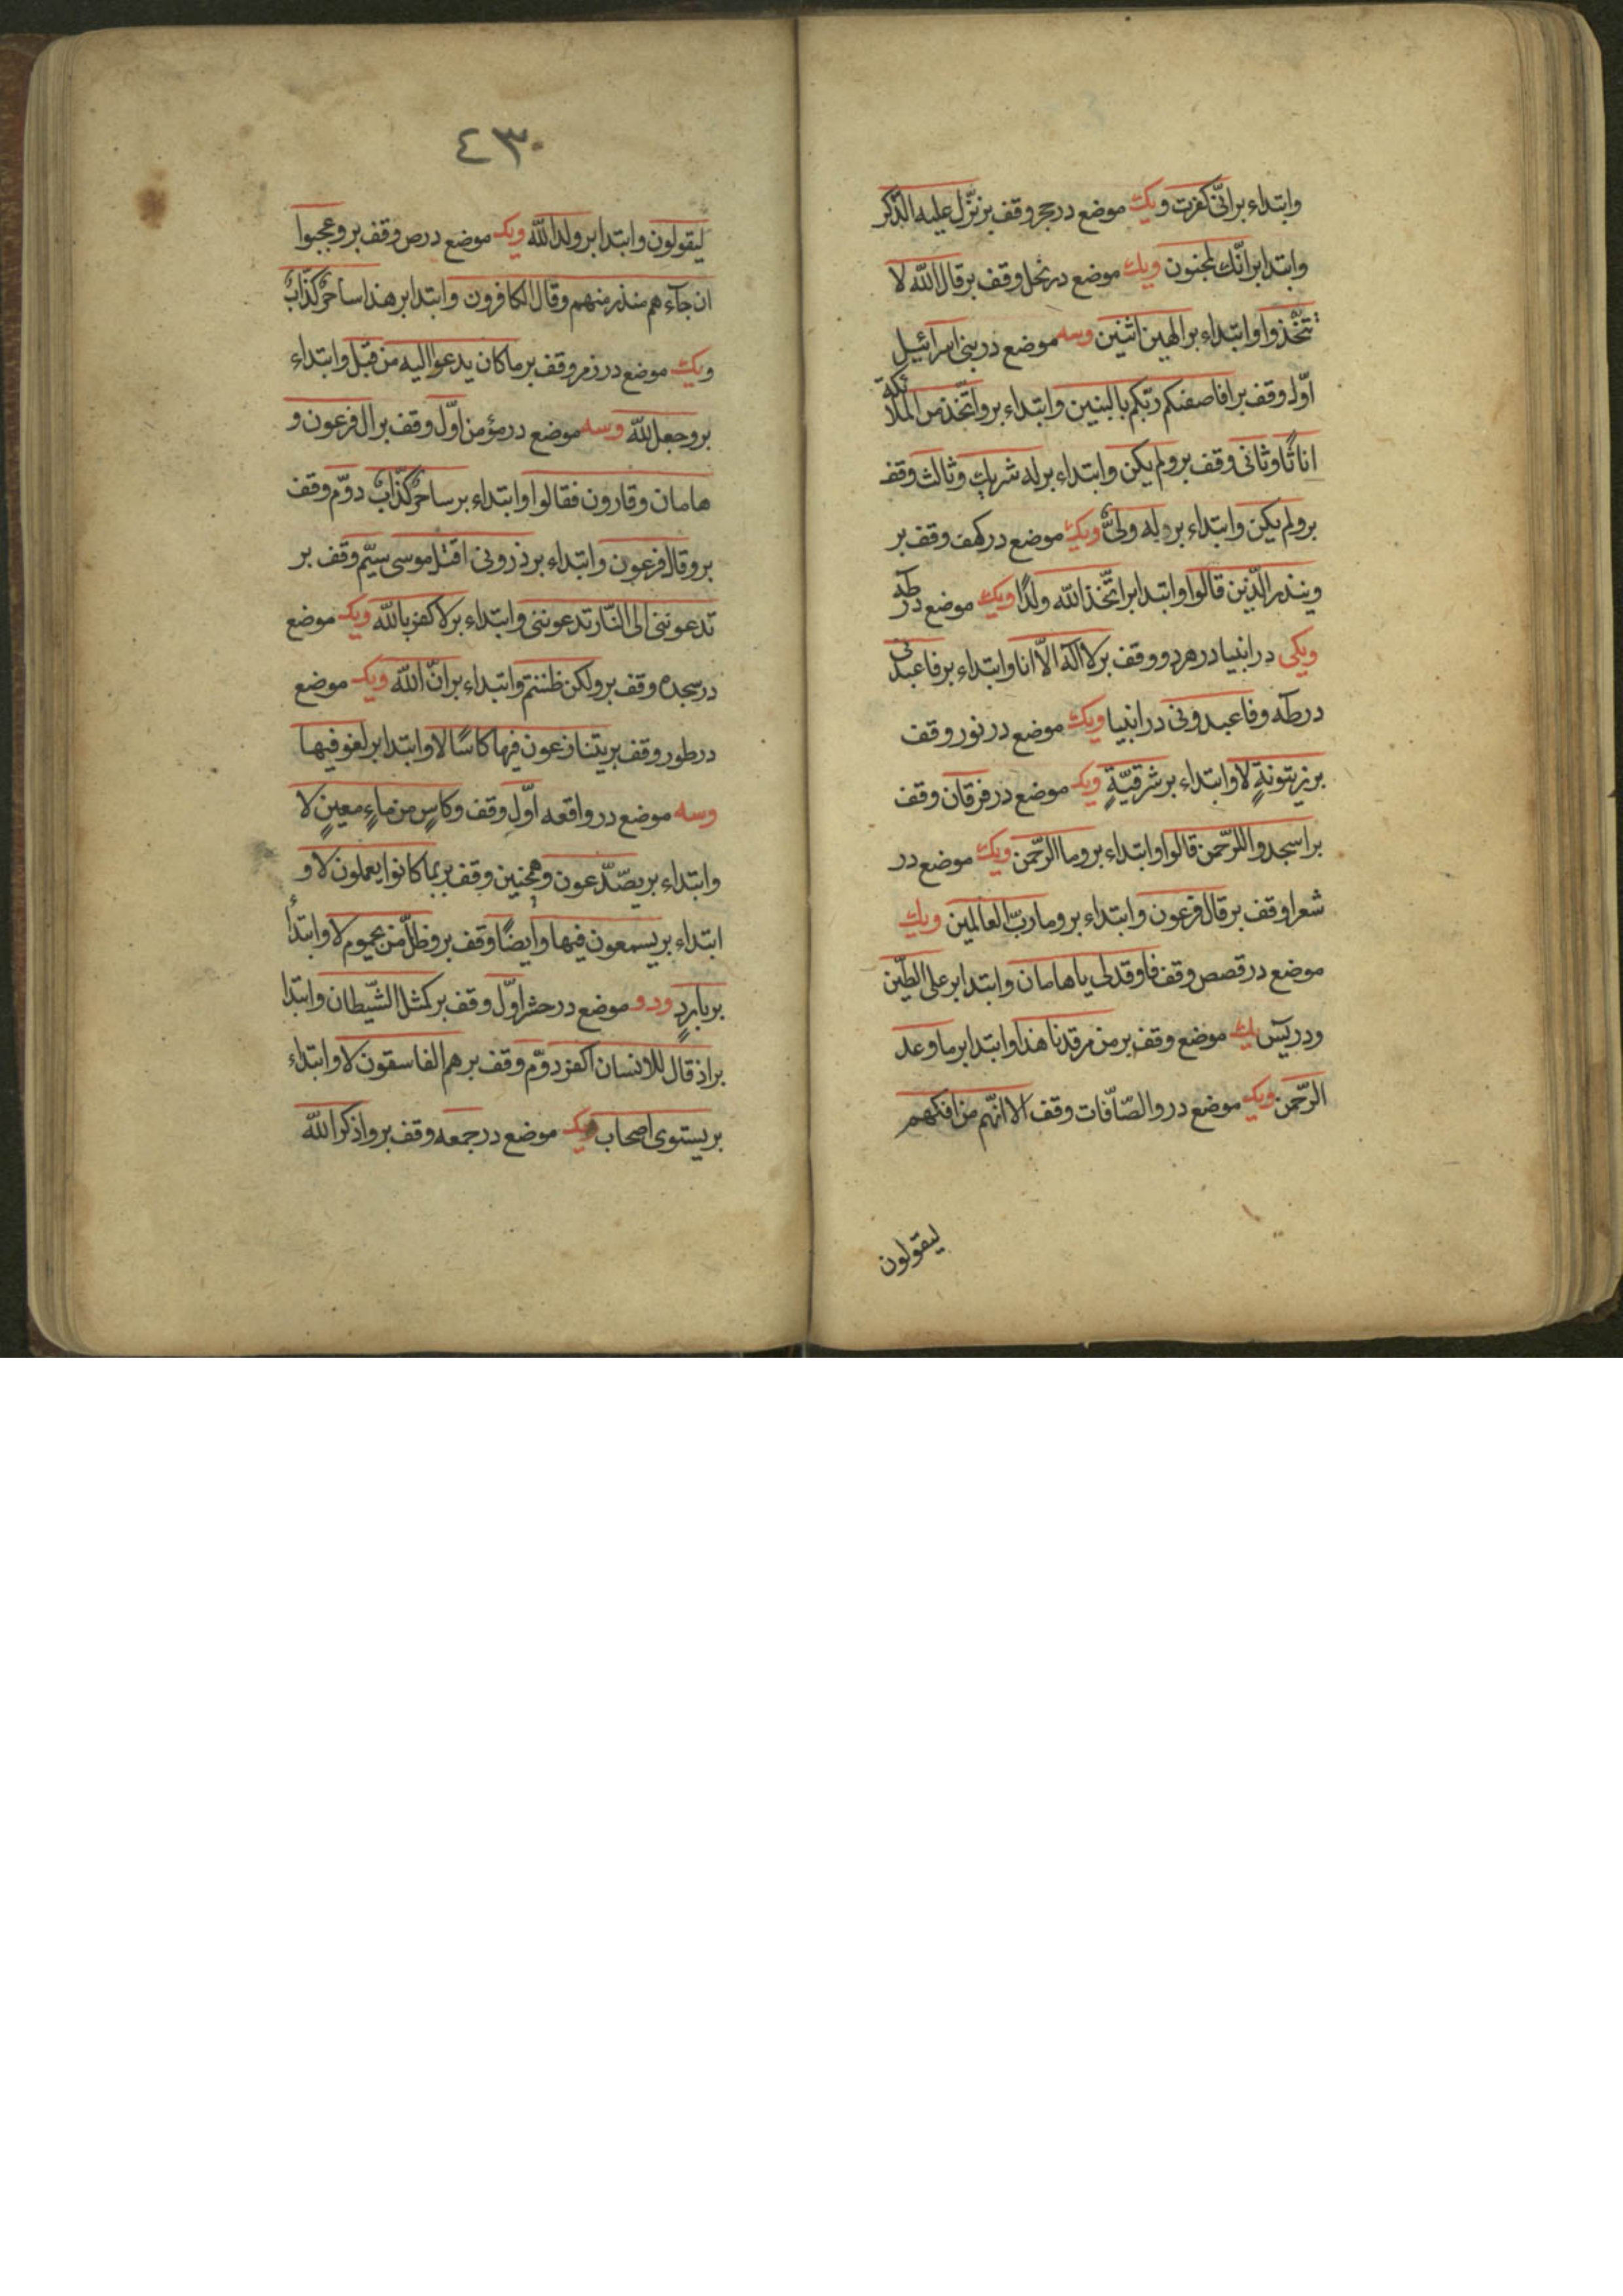 وابتداء برانّی کفرت ویک موضع در حجر وقف بر نزّل علیه الذّکر
وابتدا برانّک لمجنون ویک موضع در نحل وقف بر قال الله لا
تتّخذوا وابتداء بر الهین اثنین وسه موضع در بنی اسرائیل
اوّل وقف بر افاصفیکم ربّکم بالبنین وابتداء بر واتّخذ من الملائکة
اناثًا وثانی وقف بر ولم یکن وابتداء بر له شریک وثالث وقف
بر ولم یکن وابتداء بر له ولیٌّ ویک موضع در کهف وقف بر
وینذر الّذین قالوا وابتدا بر اتّخذ الله ولدًا ویک موضع در طٰه
ویکی در انبیا در هر دو وقف بر لا اله الّا انا وابتداء بر فاعبدنی
در طٰه وفاعبدونی در انبیا ویک موضع در نور وقف
بر زیتونةٍ لا وابتداء بر شرقیّةٍ ویک موضع در فرقان وقف
بر اسجدوا للرّحمن قالوا وابتداء بر وما الرّحمن ویک موضع در
شعرا وقف بر قال فرعون وابتداء بر وما ربّ العالمین ویک
موضع در قصص وقف فاوقد لی یا هامان وابتدا بر علی الطّین
ودر یٓس یک موضع وقف بر من مرقدنا هذا وابتدا بر ما وعد
الرّحمن ویک موضع در والصّآفّات وقف الا انّهم من افکهم
لیقولون
٤٣٠
لیقولون وابتدا بر ولد الله ویک موضع در ص وقف بر وعجبوا
ان جآءهم منذر منهم وقال الکافرون وابتدا بر هذا ساحرٌ کذّابٌ
ویک موضع در زمر وقف بر ما کان یدعوا الیه من قبل وابتداء
بر وجعل لله وسه موضع در مؤمن اوّل وقف بر ال فرعون و
هامان وقارون فقالوا وابتداء بر ساحرٌ کذّابٌ دوّم وقف
بر وقال فرعون وابتداء بر ذرونی اقتل موسی سیّم وقف بر
تدعوننی الی النّار تدعوننی وابتداء بر لاکفر بالله ویک موضع
در سجده وقف بر ولکن ظننتم وابتداء بر انّ الله ویک موضع
در طور وقف بر یتنازعون فیها کاسًا لا وابتدا بر لغو فیها
وسه موضع در واقعه اوّل وقف وکاسٍ من ماءٍ معینٍ لا
وابتداء بر یصّدّعون وهمچنین وقف بر بما کانوا یعملون لا و
ابتداء بر یسمعون فیها وایضًا وقف بر وظلٍّ من یحموم لا وابتدأ
بر باردٍ ودو موضع در حشر اوّل وقف بر کمثل الشّیطان وابتدا
بر اذ قال للانسان اکفر دوّم وقف بر هم الفاسقون لا وابتداء
بر یستوی اصحاب ویک موضع در جمعه وقف بر واذکر الله